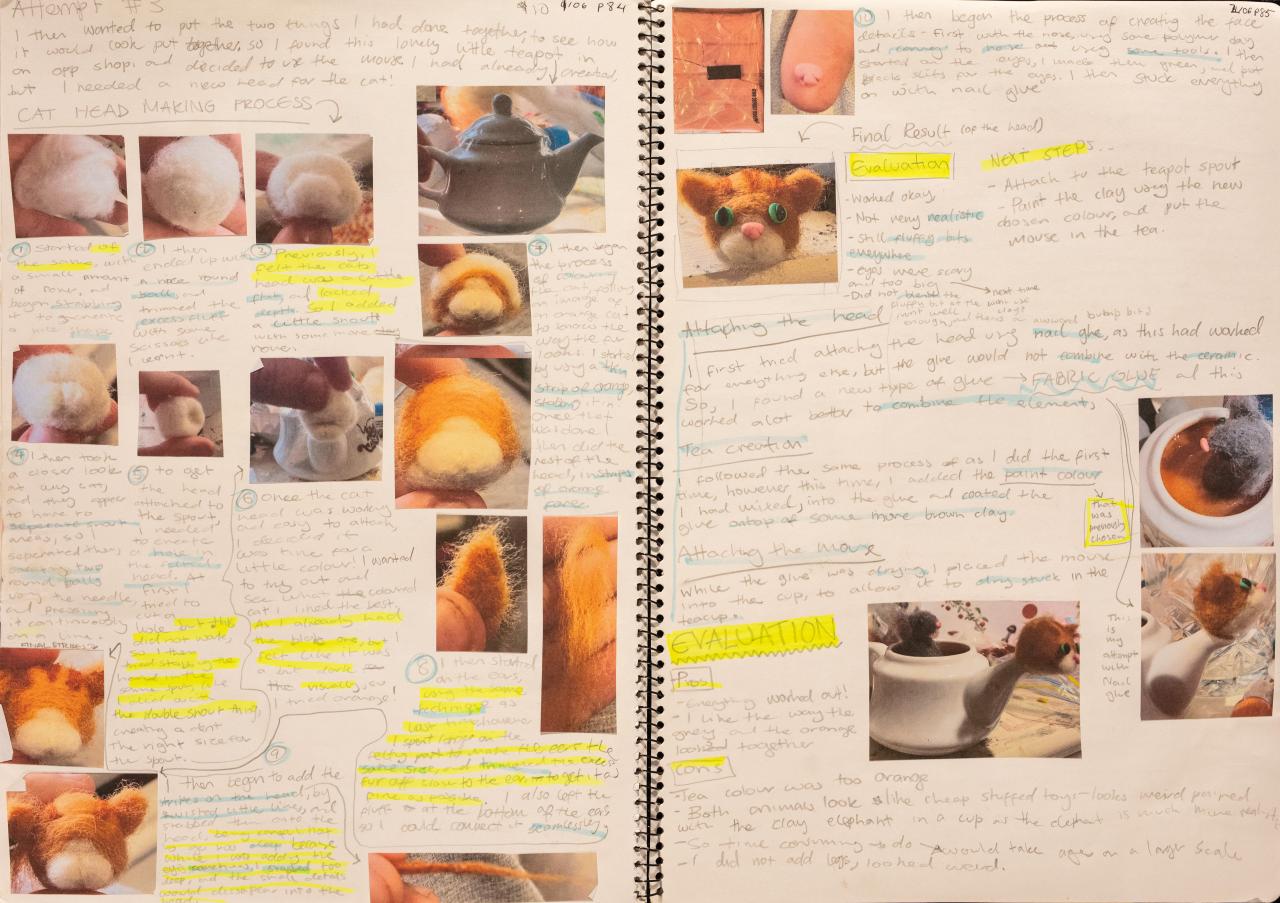 Attempt #3
$10 9/06 P84
I then wanted to put the two things I had done together, to see how
it would look put together, so I found this lonely little teapot in
an opp shop, and decided to use the mouse I had already created,
but I needed a new head for the cat!
CAT HEAD MAKING PROCESS
① Started of
the same, with
a small amount
of rover, and
began stabbing
it to generate
a nice
② I then
ended up with
a nice round
ball, and
trimmed the
excess fluff
with some
scissors like
I want.
③ Previously, I
felt the cats
head was a little
flat and lacked
depth. So I added
a little snout
with some
rover.
④ I then took
a closer look
at my cat,
and they appear
to have to
separate snout
areas, so I
separated them,
creating two
round balls
using the needle,
and pressing
it continuously
on a line.
⑤ to get
the head
attached to
the spout,
I needed
to create
a hole in
the
head. At
first I
tried to cut a
hole out this
did not work,
So I then
tried stabbing the
same spot, like
the double snout thing,
creating a dent
the right size for
the spout.
⑥ Once the cat
head was working
and easy to attach,
I decided it
was time for a
little colour! I wanted
to try out and
see what the coloured
cat I liked the best,
As I already had
the black one, but I
felt like it was
a bit
the visually, so
I tried orange!
⑦ I then began
the process
of colouring
the cat, following
an image of
an orange cat
to know the
way the fur
looks. I started
by using a thin
strip of orange,
stabbing it.
Once that
was done I
then did the
rest of the
head, in strips
of orange
FINAL STRIPES
⑧ I then started
on the ears,
using the same
technique as
last
I spent longer on the
same size, and trimmed the excess
fur off close to the ear, to get it as
as possible. I also left the
fluff at the bottom of the ears
so I could connect it seamlessly
⑨
I then began to add the
stripes on the head, by
twisted the lines, and
stabbed them onto the
head, being careful not
to go too deep because
while I was adding the
deep, and the small details
would disappear into the
head.
9/06 P85
⑩ I then began the process of creating the face
details - first with the nose, using polymer clay
and to nose using some tools. I then
started on the eyes, I made them green, and put
black slits for the eyes. I then stuck everything
on with nail glue
Final Result (of the head)
Evaluation
- Worked okay,
- Not very realistic
- Still fluffy bits
everywhere
- eyes were scary
and too big
- Did not blend the
fluffy bit at the
paint well
enough, and there's awkward bump bits)
next time
NEXT STEPS...
- Attach to the teapot spout
- Paint the clay using the new
chosen colour, and put the
mouse in the tea.
Attaching the head
I first tried attaching the head using nail glue, as this had worked
for everything else, but the glue would not combine with the ceramic.
So, I found a new type of glue → FABRIC GLUE and this
worked alot better to combine the elements
Tea creation
I followed the same process as I did the first
time, however this time, I added the paint colour
I had mixed, into the glue and coated the
glue ontop of some more brown clay.
That
was
previously
chosen
Attaching the mouse
while the glue was drying, I placed the mouse
into the cup, to allow it to dry stuck in the
teacup.
This
is my
attempt
with
Nail
glue
EVALUATION
Pros
- Everything worked out!
- I like the way the
grey and the orange
looked together
Cons
- Tea colour was too orange
- Both animals look like cheap stuffed toys - looks weird paired
with the clay elephant in a cup as the elephant is much more realistic
- So time consuming to do → would take ages on a large scale
- I did not add legs, looked weird.